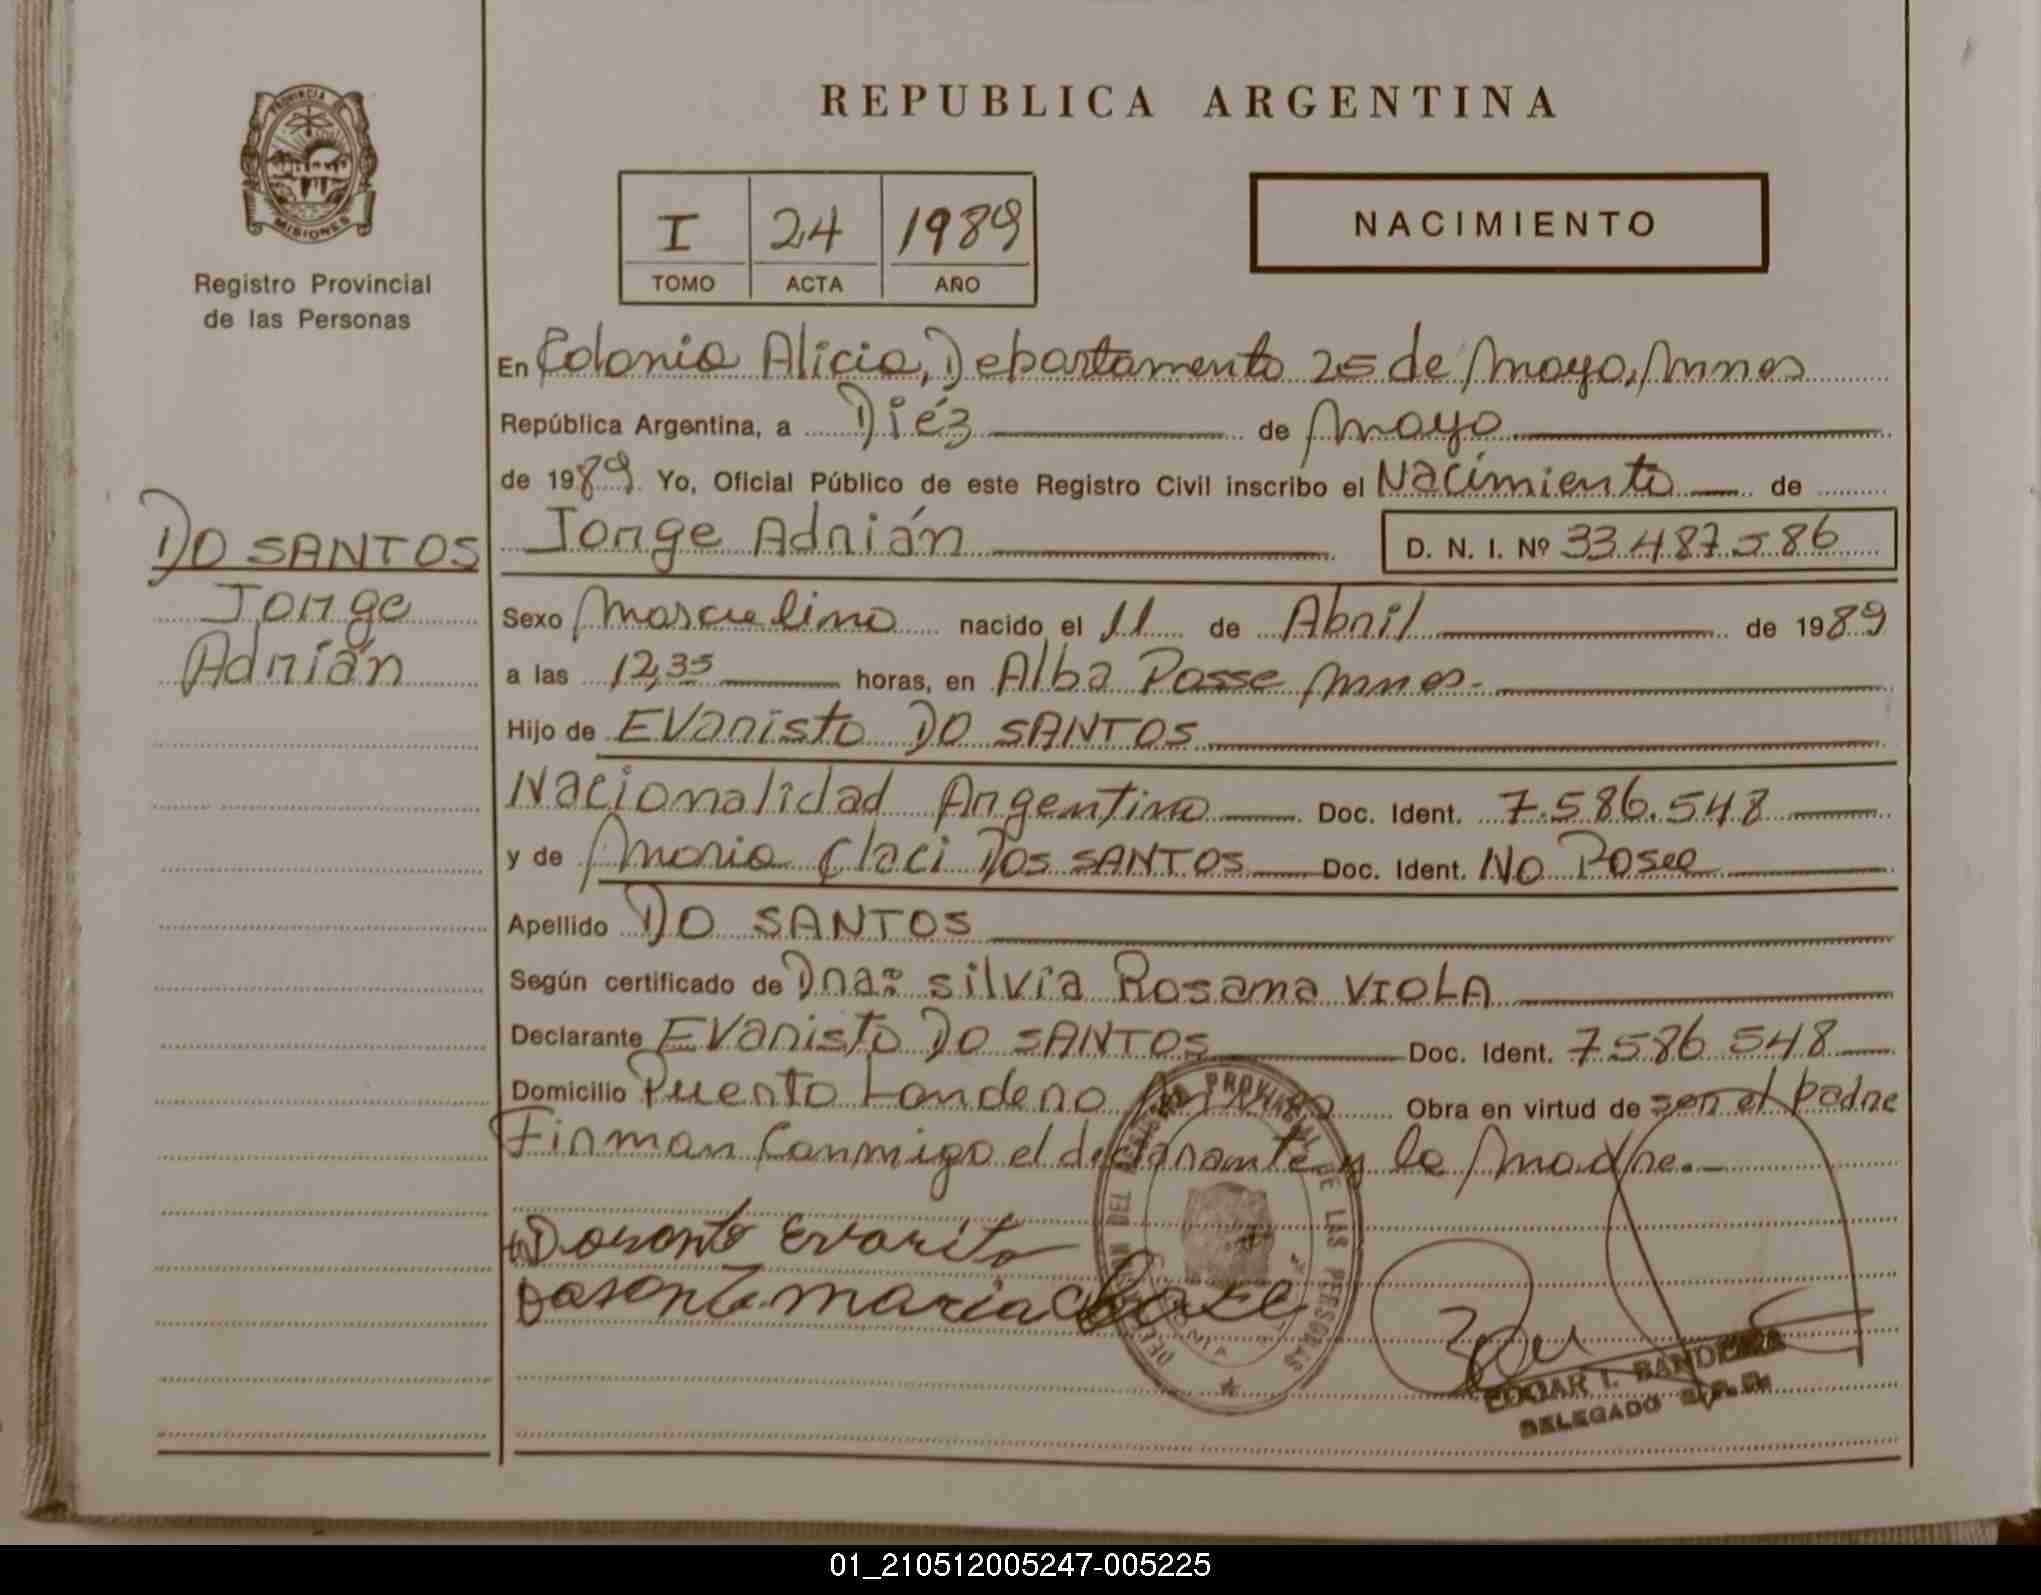 PROVINCIA DE
MISIONES
Registro Provincial
de las Personas
DO SANTOS
Jorge
Adrián
REPUBLICA ARGENTINA
I 24 1989
TOMO ACTA AÑO
NACIMIENTO
En Colonia Alicia, Departamento 25 de Mayo, Mnes
República Argentina, a Diéz de Mayo
de 1989. Yo, Oficial Público de este Registro Civil inscribo el Nacimiento de
Jorge Adrián D. N. I. Nº 33.487.586
Sexo Masculino nacido el 11 de Abril de 1989
a las 12,35 horas, en Alba Posse Mnes.
Hijo de Evaristo DO SANTOS
Nacionalidad Argentino Doc. Ident. 7.586.548
y de Maria Claci DOS SANTOS Doc. Ident. No Posee
Apellido DO SANTOS
Según certificado de Dña: Silvia Rosana VIOLA
Declarante Evaristo DO SANTOS Doc. Ident. 7.586.548
Domicilio Puerto Londero Mnes Obra en virtud de ser el padre
Firman Conmigo el declarante y la Madre.
Dosanto Evarito
Dasonto maria
EDGAR I. BANDERA
DELEGADO
01_210512005247-005225